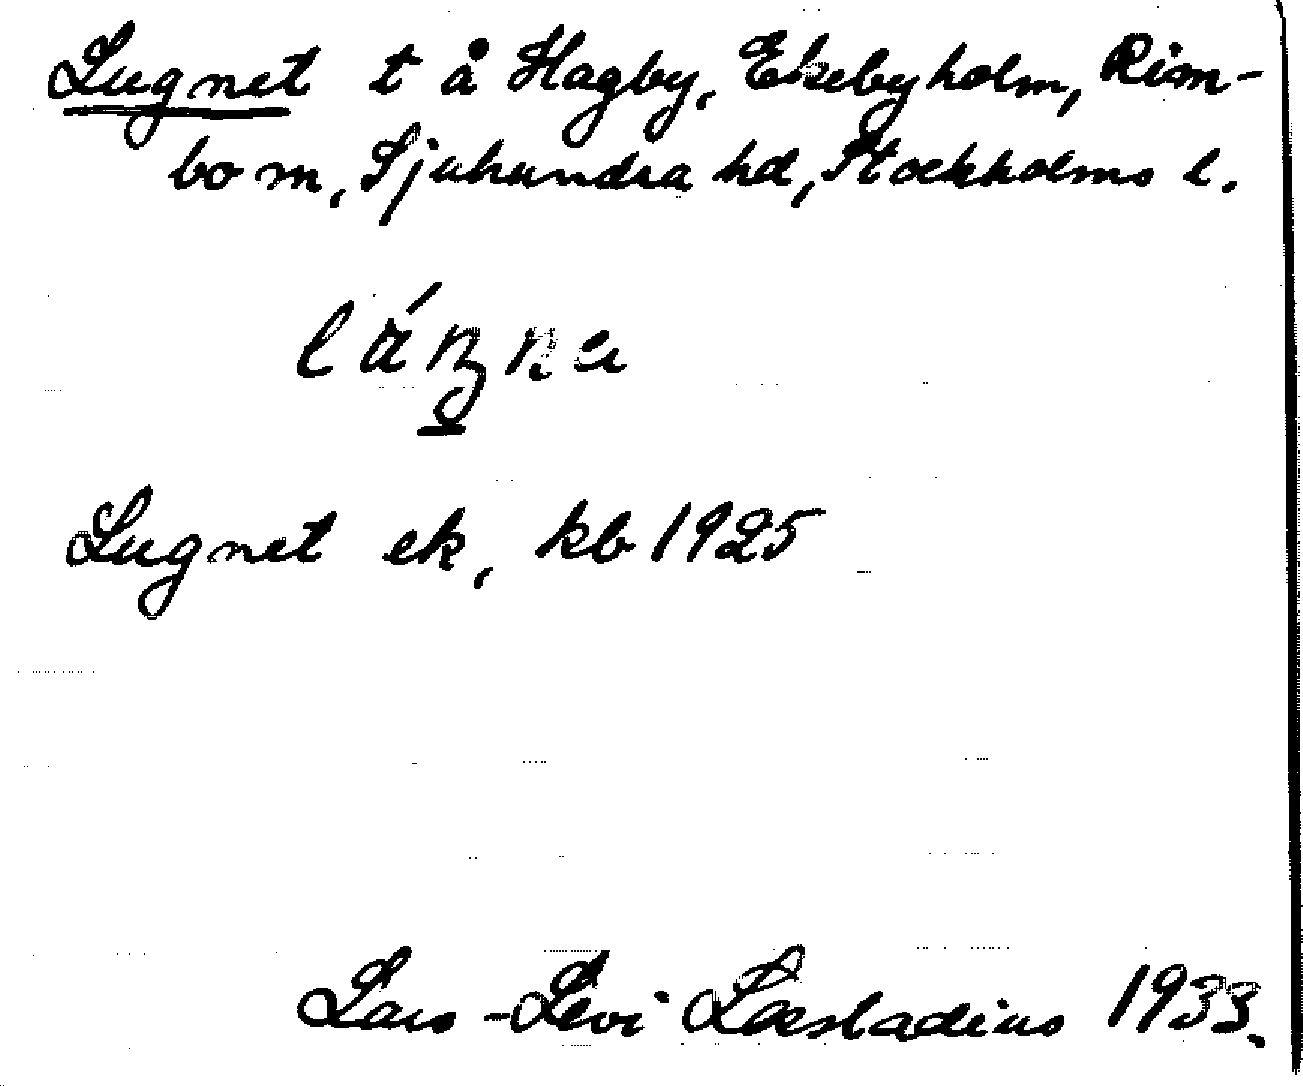 Lugnet t å Hagby, Ekebyholm, Rim-
bo sn, Sjuhundra hd, Stockholms l.
Lugnet ek, kb 1925
Lars-Levi Læstadius 1933.